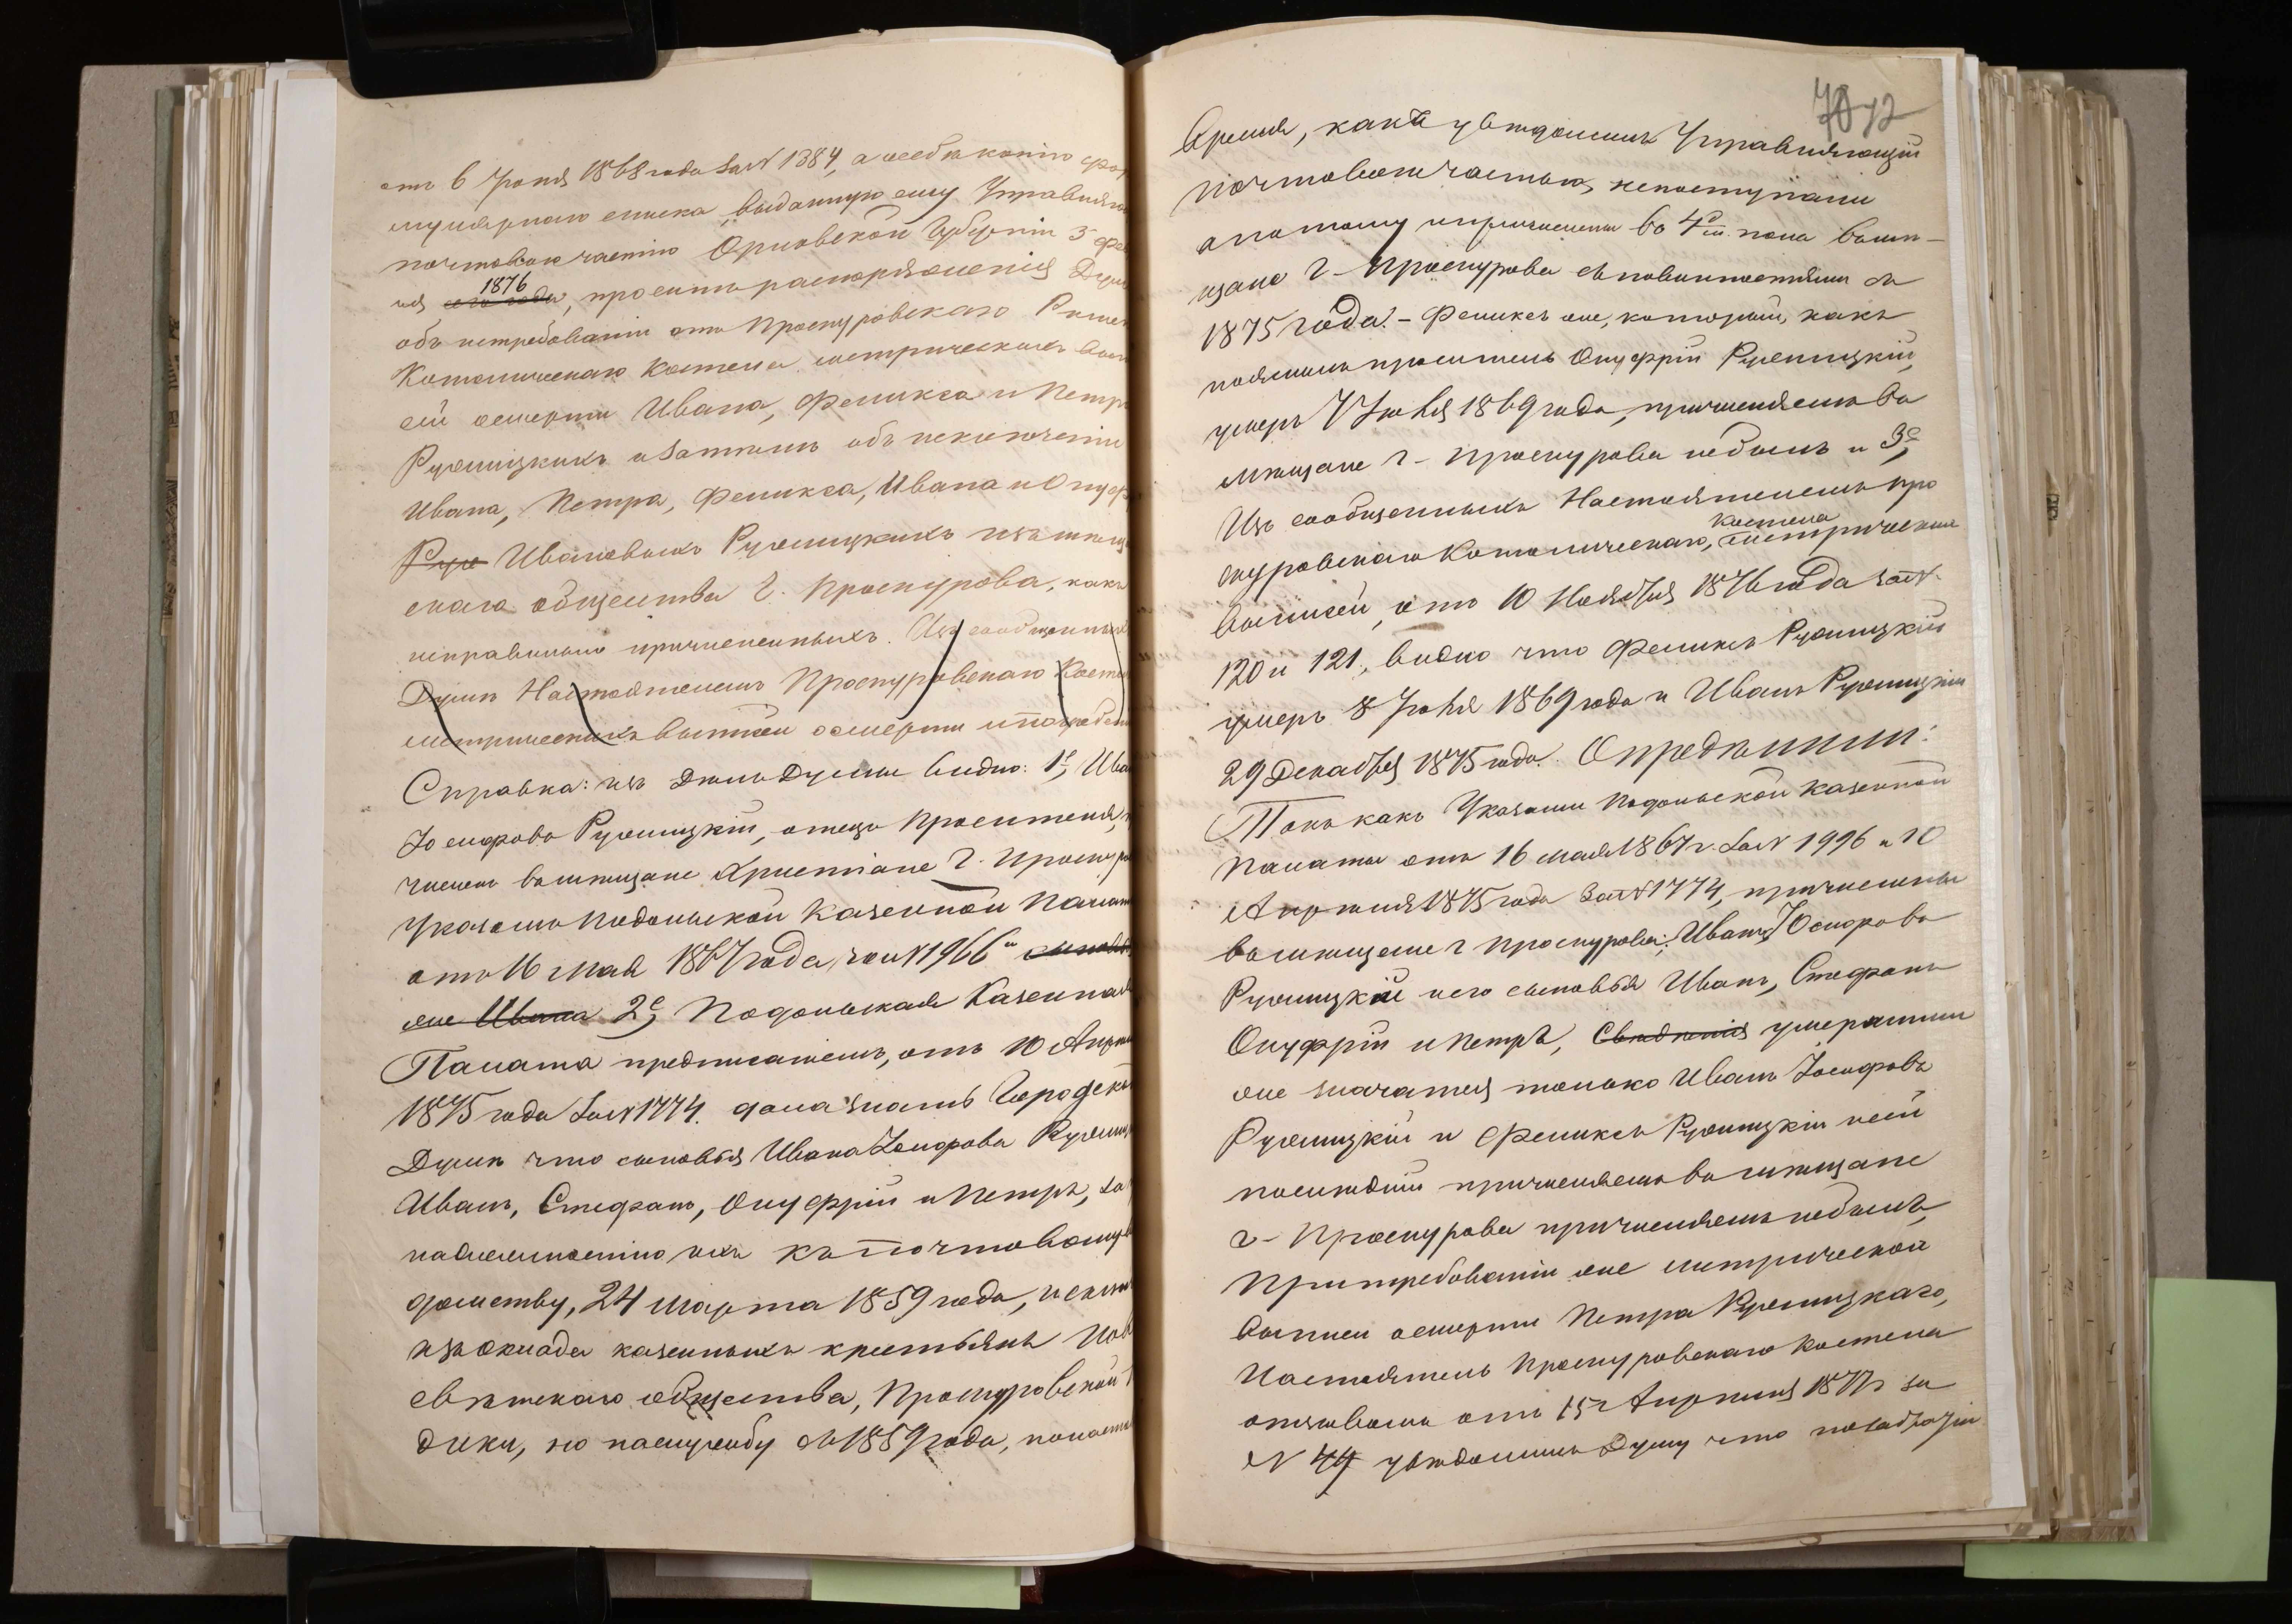 отъ 6 Іюня 1868 года за N 1384, а себѣ копію фор
мулярнаго списка, выданную ему Управляю
почтовою частію Орловской Губерніи 3 фев
ля 1876 сего года, проситъ распоряженія Думы
объ истребованіи отъ Проскуровскаго Римско
Католическаго Костела метрическихъ вып
сей о смерти Ивана, Феликса и Петра
Ружицкихъ и затѣмъ объ исключеніи
Ивана, Петра, Феликса, Ивана и Онуф
Руж Ивановыхъ Ружицкихъ изъ мѣщ
скаго общества г. Проскурова, какъ
неправильно причисленныхъ. Изъ сообщенныхъ
Думѣ Настоятелемъ Проскуровскаго Косте
метрическихъ выписей о смерти и погребен
Справка: изъ дѣлъ Думы видно: 1е, Ива
Іосифовъ Ружицкій, отецъ просителя,
численъ въ мѣщане Христіане г. Проскуро
Указомъ Подольской Казенной Палат
отъ 16 Мая 1867 года, за N 1966
же Ивана 2е, Подольская Казенная
Палата предписаніемъ, отъ 10 Апрѣ
1875 года за N 1774. дала знать Городско
Думѣ что сыновья Ивана Іосифова Ружиц
Иванъ, Стефанъ, Онуфрій и Петръ, за
надлежностію ихъ къ почтовому вѣ
домству, 24 Марта 1859 года, исклю
изъ оклада казенныхъ крестьянъ
свѣтскаго общества, Проскуровской
дики, но на службу съ 1859 года,
время, какъ увѣдомилъ Управляющій
почтовою частью, не поступали
а потому и причислены во 2й пол. въ мѣ-
щане г. Проскурова съ повинностями съ
1875 года. – Феликсъ же, который, какъ
пояснилъ проситель Онуфрій Ружицкій,
умеръ 7 Іюня 1869 года, причисляемъ въ
мѣщане г. Проскурова не былъ и 3е,
Изъ сообщенныхъ Настоятелемъ Про
скуровскаго Католическаго, костела метрическихъ
выписей, отъ 10 Ноября 1876 года за N
120 и 121, видно что Феликсъ Ружицкій
умеръ 8 Іюня 1869 года и Иванъ Ружицкій
29 Декабря 1875 года. Опредѣлили:
Такъ какъ Указами Подольской Казенной
Палаты отъ 16 мая 1867 г. за N 1996 и 10
Апрѣля 1875 года за N 1774, причислены
въ мѣщане г Проскурова: Иванъ Іосифовъ
Ружицкій и его сыновья Иванъ, Стефанъ
Онуфрій и Петръ, Свѣдѣнія умершими
же значатся только Иванъ Іосифовъ
Ружицкій и Феликсъ Ружицкій и сей
послѣдній причисляемъ въ мѣщане
г. Проскурова причисляемъ не былъ,
При требованіи же метрической
выписи о смерти Петра Ружицкаго,
Настоятель Проскуровскаго Костела
отзывомъ отъ 15 Апрѣля 1877 г за
N 44 увѣдомилъ Думу что по собраніи